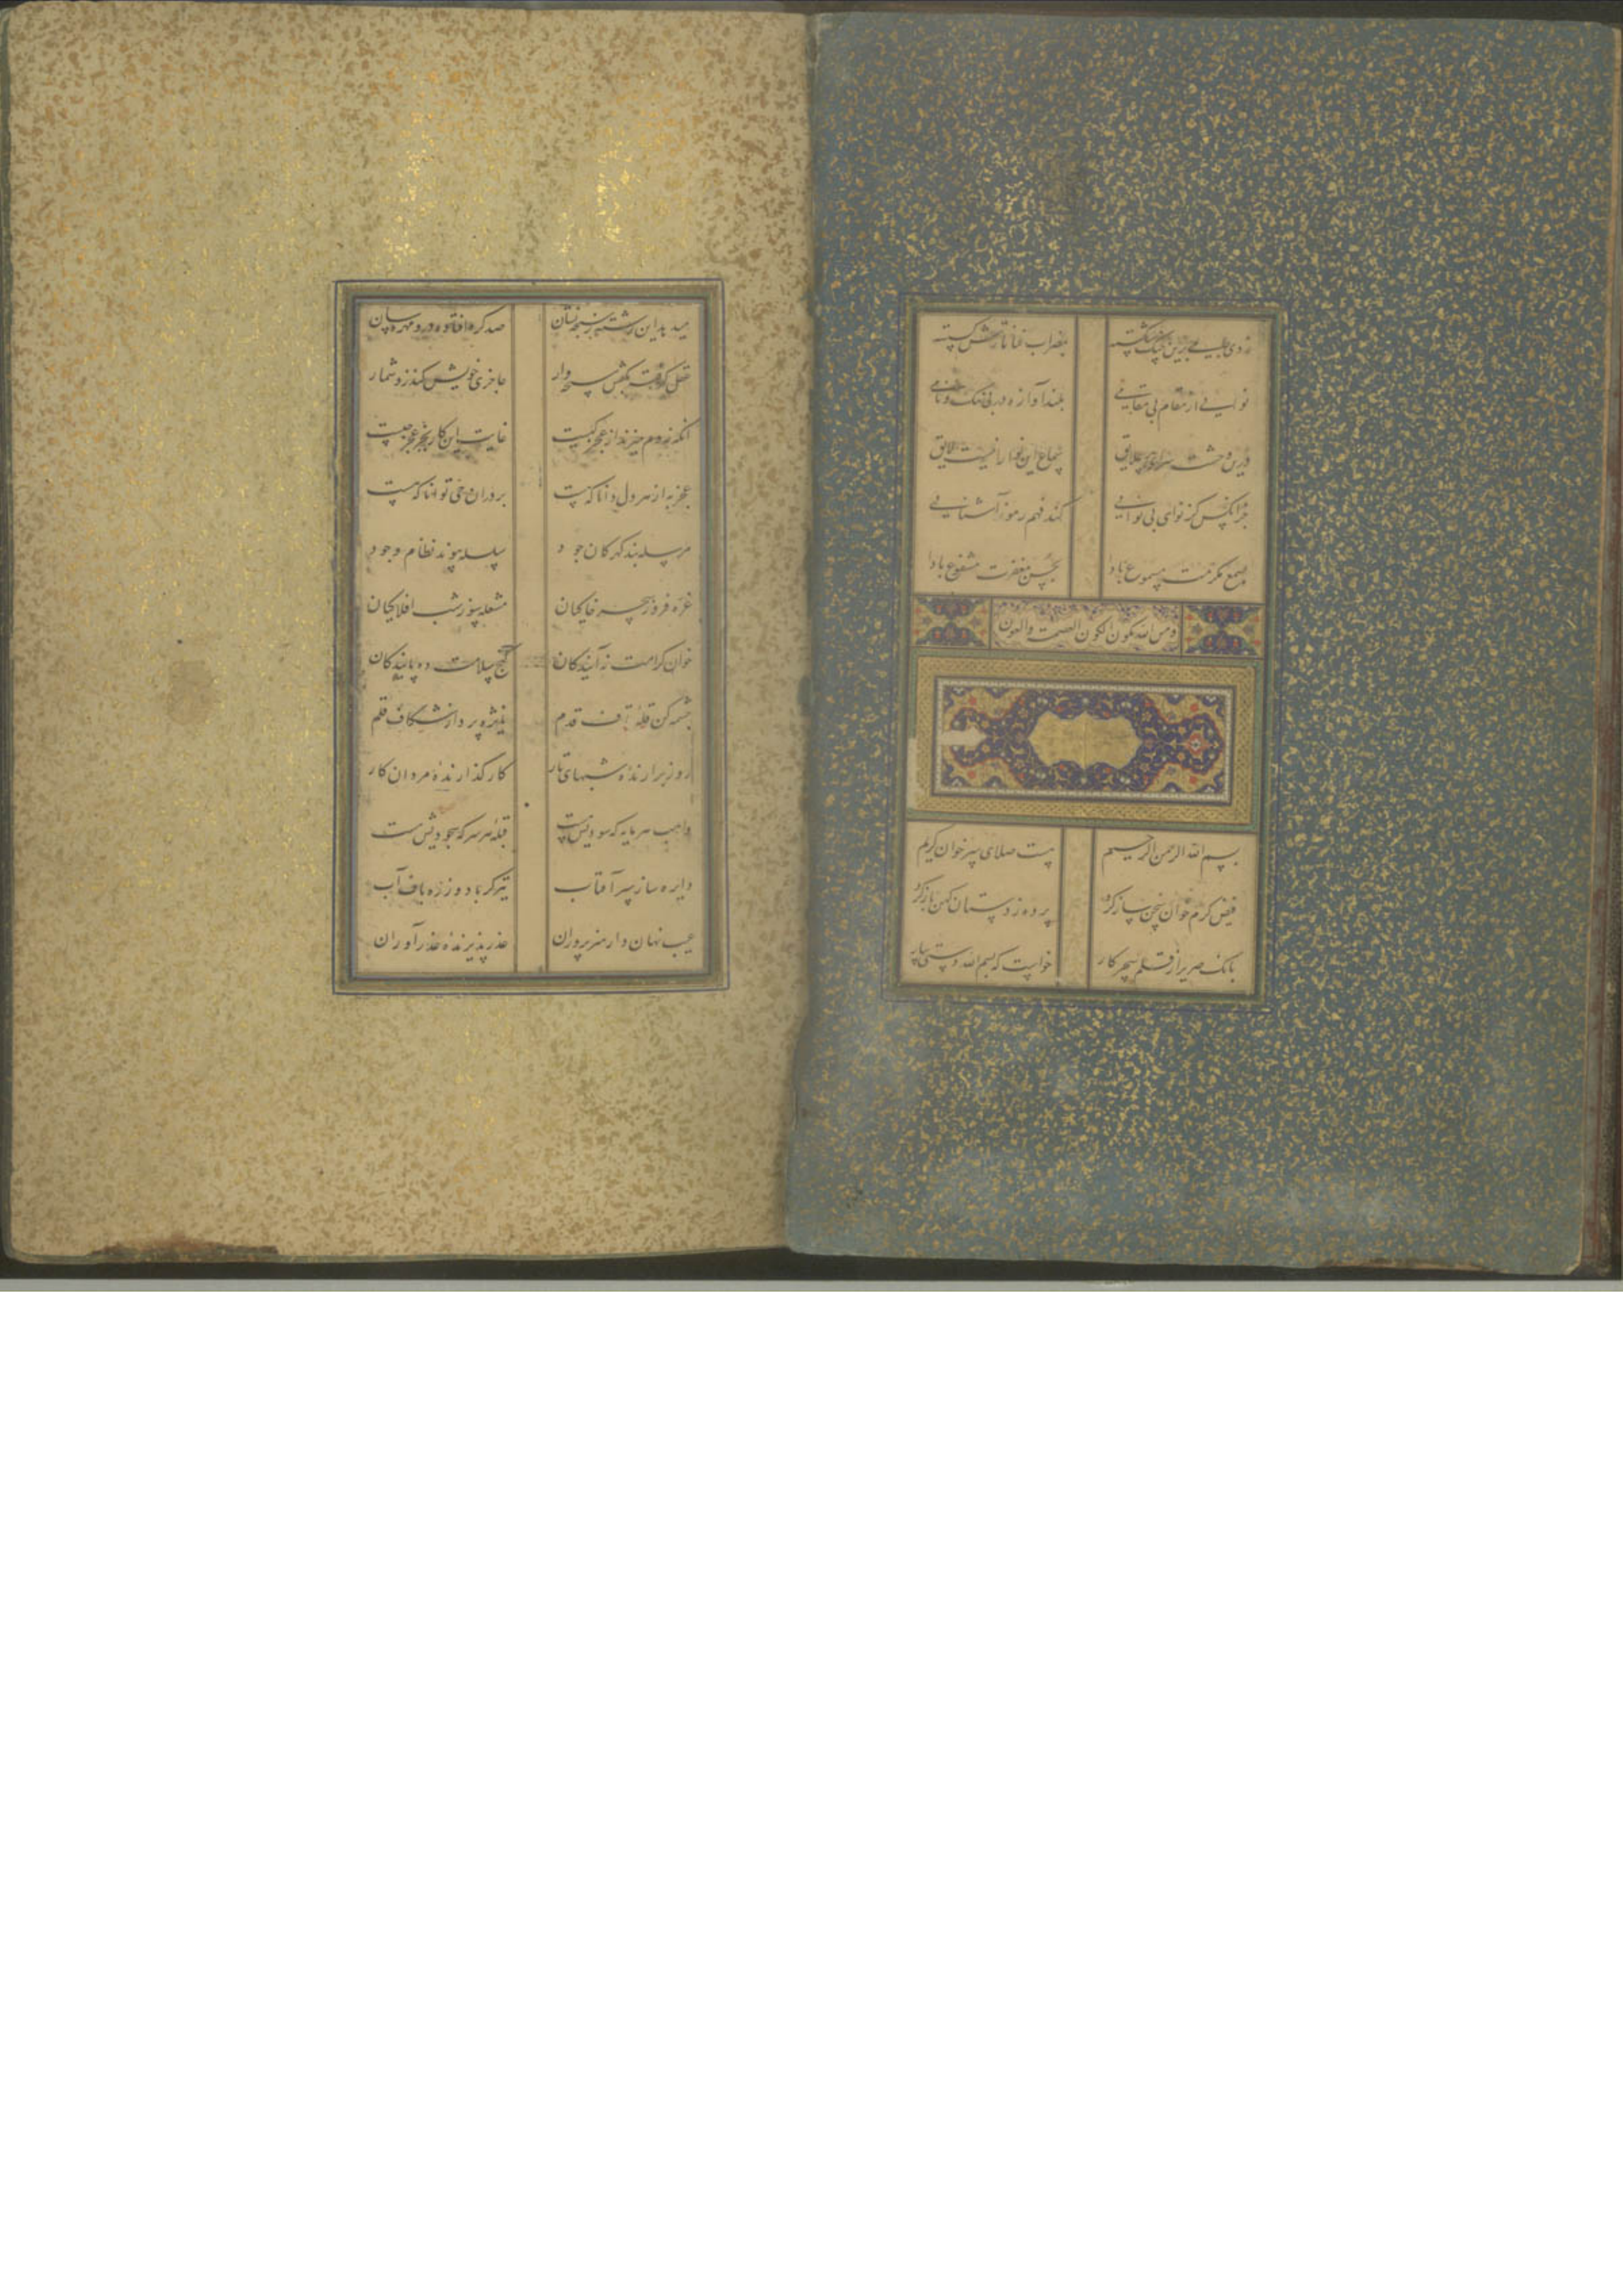 زدی جامی برین چنگ شکسته بمضراب عنا تار گسسته
نوایی از مقام بی مقامی بلند آوازه در بی ننگ و نامی
درین وحشت سرای پر علایق سماع این نوا را نیست لایق
جز آنکس کز نوای بی نوایی کند فهم رموز آشنایی
بسمع مکرمت مسموع بادا بحسن مغفرت مشفوع بادا
ومن الله مکون الکون العصمت والعون
بسم الله الرحمن الرحیم هست صلای سر خوان کریم
فیض کرم خوان سخن ساز کرد پرده ز دستان کهن باز کرد
بانک صریر از قلم سحر کار خواست که بسم الله دستی بیار
میدید این رشته ز سبحه نشان صد کره افتاده درو مهره سان
عقل کرفته بکفش سبحه وار عاجزی خویش کند زو شمار
انکه نه دم میزند از عجز کیست غایت این کار بجز عجز چیست
عجز به از هر دل دانا که هست بر در ان حی توانا که هست
مرسله بند کهر کان جود سلسله پیوند نظام وجود
غره فروز سحر خاکیان مشعله سوز شب افلاکیان
خوان کرامت نه آیندکان کنج سلامت ده پایندکان
چشمه کن قله قاف قدم نایژه پرداز شکاف قلم
روز برارنده شبهای تار کار کذارنده مردان کار
واهب هر مایه که سودیش هست قبله هر سر که سجودیش هست
دایره ساز سپر آفتاب تیرکر باد و زره باف آب
عیب نهان دار هنر پروران عذر پذیرنده عذر آوران